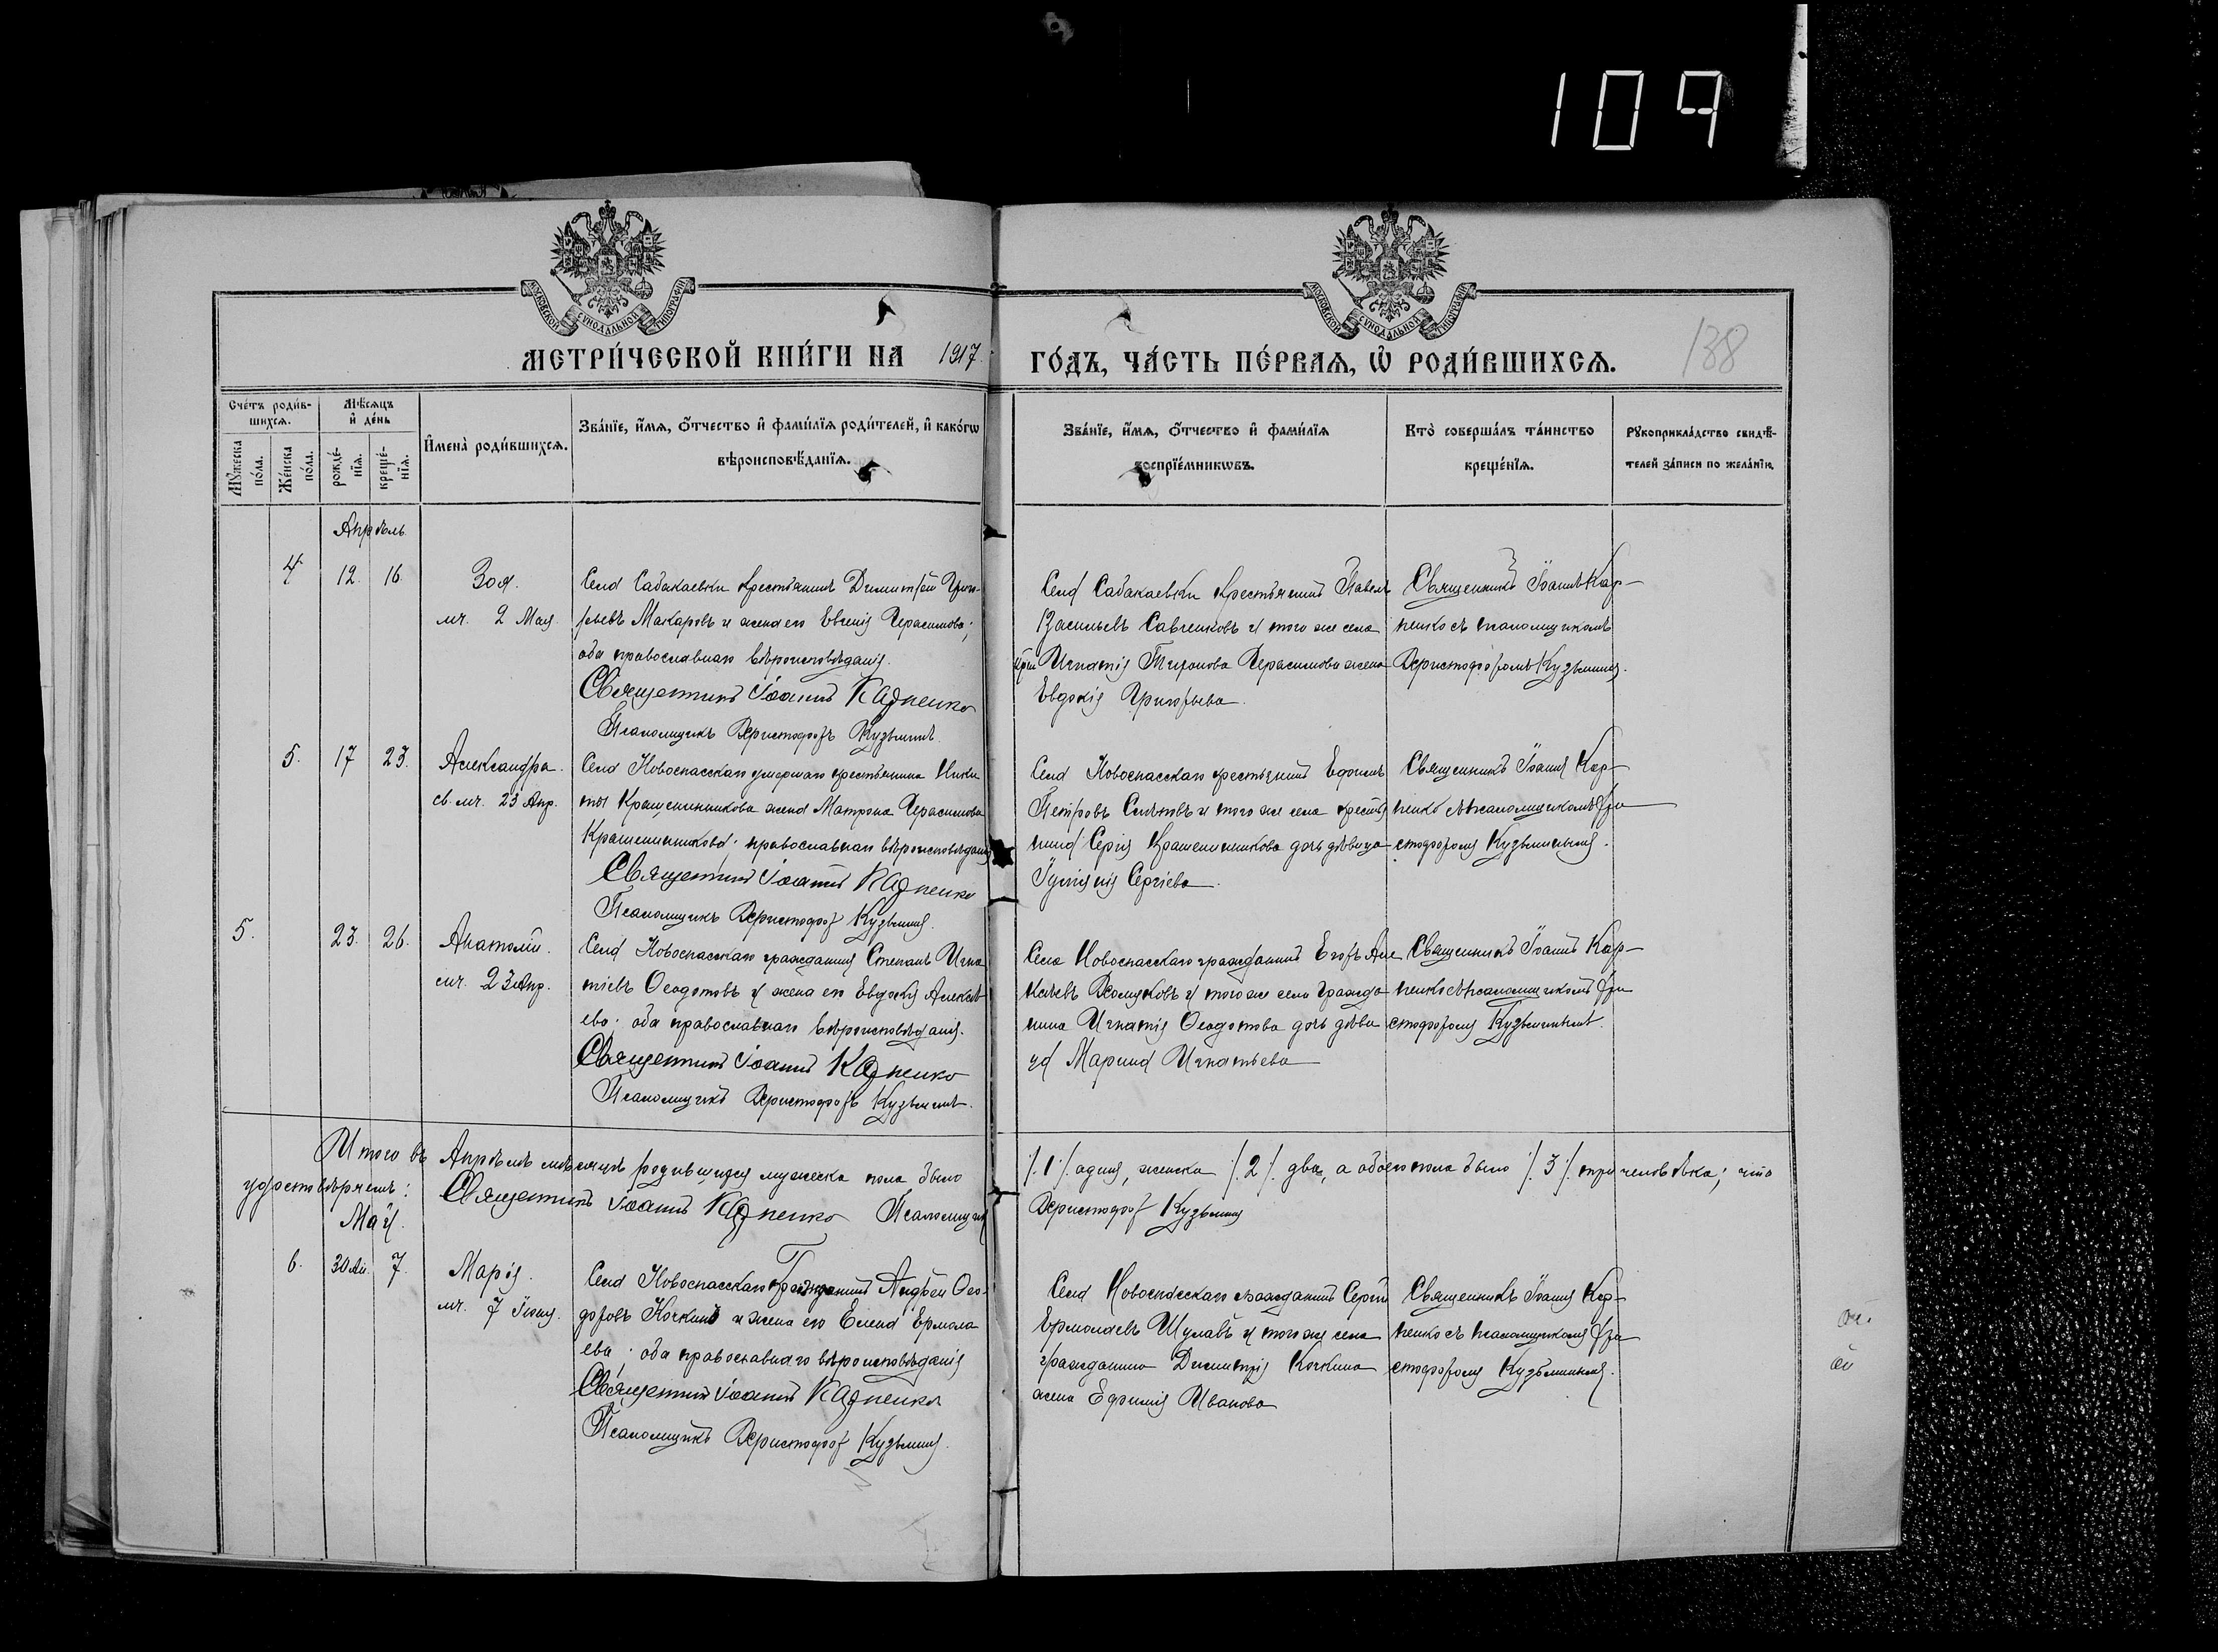 109
МОСКОВСКОЙ СУНОДАЛЬНОЙ ТИПОГРАФІИ
МОСКОВСКОЙ СУНОДАЛЬНОЙ ТИПОГРАФІИ
МЕТРИ́ЧЕСКОЙ КНИ́ГИ НА 1917 ГО́ДЪ, ЧА́СТЬ ПЕ́РВАЯ, Ѡ РОДИ́ВШИХСЯ.
138
Сче́тъ роди́в-
шихся.
Мѣ́сяцъ
и҆ де́нь
Мꙋ́жеска
по́ла.
Же́нска
по́ла.
рожде́-
нїя.
креще́-
нїя.
И҆мена̀ роди́вшихся.
Зва́нїе, и҆́мя, ѻ҆́тчество и҆ фами́лїя роди́телей, и҆ како́гѡ
вѣроисповѣ́данїя.
Зва́нїе, и҆́мя, ѻ҆́тчество и҆ фами́лїя
воспрїе́мникѡвъ.
Кто̀ соверша́лъ та́инство
креще́нїя.
Рꙋкоприкла́дство свидѣ́-
телей за́писи по жела́нїю.
Апрѣль
4 12. 16. Зоя.
мч. 2 Мая
Села Сабакаевки крестьянинъ Димитрій Григо-
рьевъ Макаровъ и жена его Евгенія Герасимова;
оба православнаго вѣроисповѣданія.
Священникъ Іоаннъ Карпенко
Псаломщикъ Христофоръ Кузьминъ.
Села Сабакаевки крестьянинъ Павелъ
Васильевъ Савченковъ и того же села
кр-на Игнатія Тихонова Герасимова жена
Евдокія Григорьева.
Священникъ Іоаннъ Кар-
пенко съ псаломщикомъ
Христофоромъ Кузьминымъ.
5. 17 23. Александра.
св. мч. 23 Апр.
Села Новоспасскаго умершаго крестьянина Ники
ты Крашенинникова жена Матрона Герасимова
Крашенинникова; православнаго вѣроисповѣданія
Священникъ Іоаннъ Карпенко
Псаломщикъ Христофоръ Кузьминъ.
Села Новоспасскаго крестьянинъ Ефимъ
Петровъ и того же села крестья
нина Сергія Крашенинникова дочь дѣвица
Іуліанія Сергіева.
Священникъ Іоаннъ Кар-
пенко съ псаломщикомъ Хри
стофоромъ Кузьминымъ.
5. 23. 26. Анатолій.
мч. 23 Апр.
Села Новоспасскаго гражданинъ Степанъ Игна
тіевъ Ѳеодотовъ и жена его Евдокія Алексѣ
ева; оба православнаго вѣроисповѣданія.
Священникъ Іоаннъ Карпенко
Псаломщикъ Христофоръ Кузьминъ.
Села Новоспасскаго гражданинъ Егоръ Але
ксѣевъ Хомуковъ и того же села гражда
нина Игнатія Ѳеодотова дочь дѣви
ца Марина Игнатьева
Священникъ Іоаннъ Кар-
пенко съ псаломщикомъ Хри
стофоромъ Кузьминымъ.
Итого въ Апрѣлѣ мѣсяцѣ родившихся мужеска пола было /.1/. одинъ, женска /.2/. два, а обоего пола было /.3/. три человѣка; что
удостовѣряемъ: Священникъ Іоаннъ Карпенко Псаломщикъ Христофоръ Кузьминъ
Май.
6. 30 Ап. 7. Марія.
мч. 7 Іюня.
Села Новоспасскаго Гражданинъ Андрей Ѳео-
доровъ Кочкинъ и жена его Елена Ермола
ева; оба православнаго вѣроисповѣданія
Священникъ Іоаннъ Карпенко
Псаломщикъ Христофоръ Кузьминъ.
Села Новоспасскаго гражданинъ Сергій
Ермолаевъ и того же села
гражданина Димитрія Кочкина
жена Ефимія Иванова
Священникъ Іоаннъ Кар-
пенко съ псаломщикомъ Хри
стофоромъ Кузьминымъ.